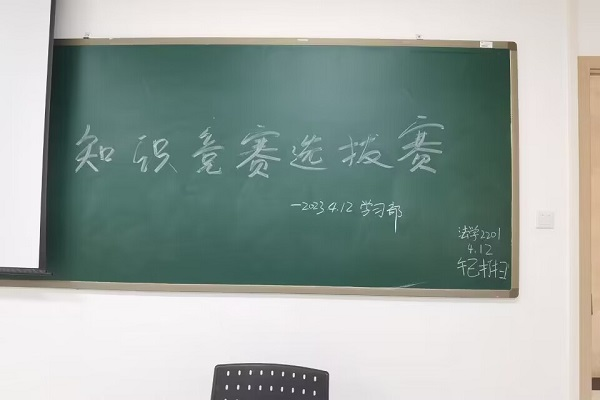 知识竞赛选拔赛
—2023 4.12 学习部
法学2201
4.12
午已打扫